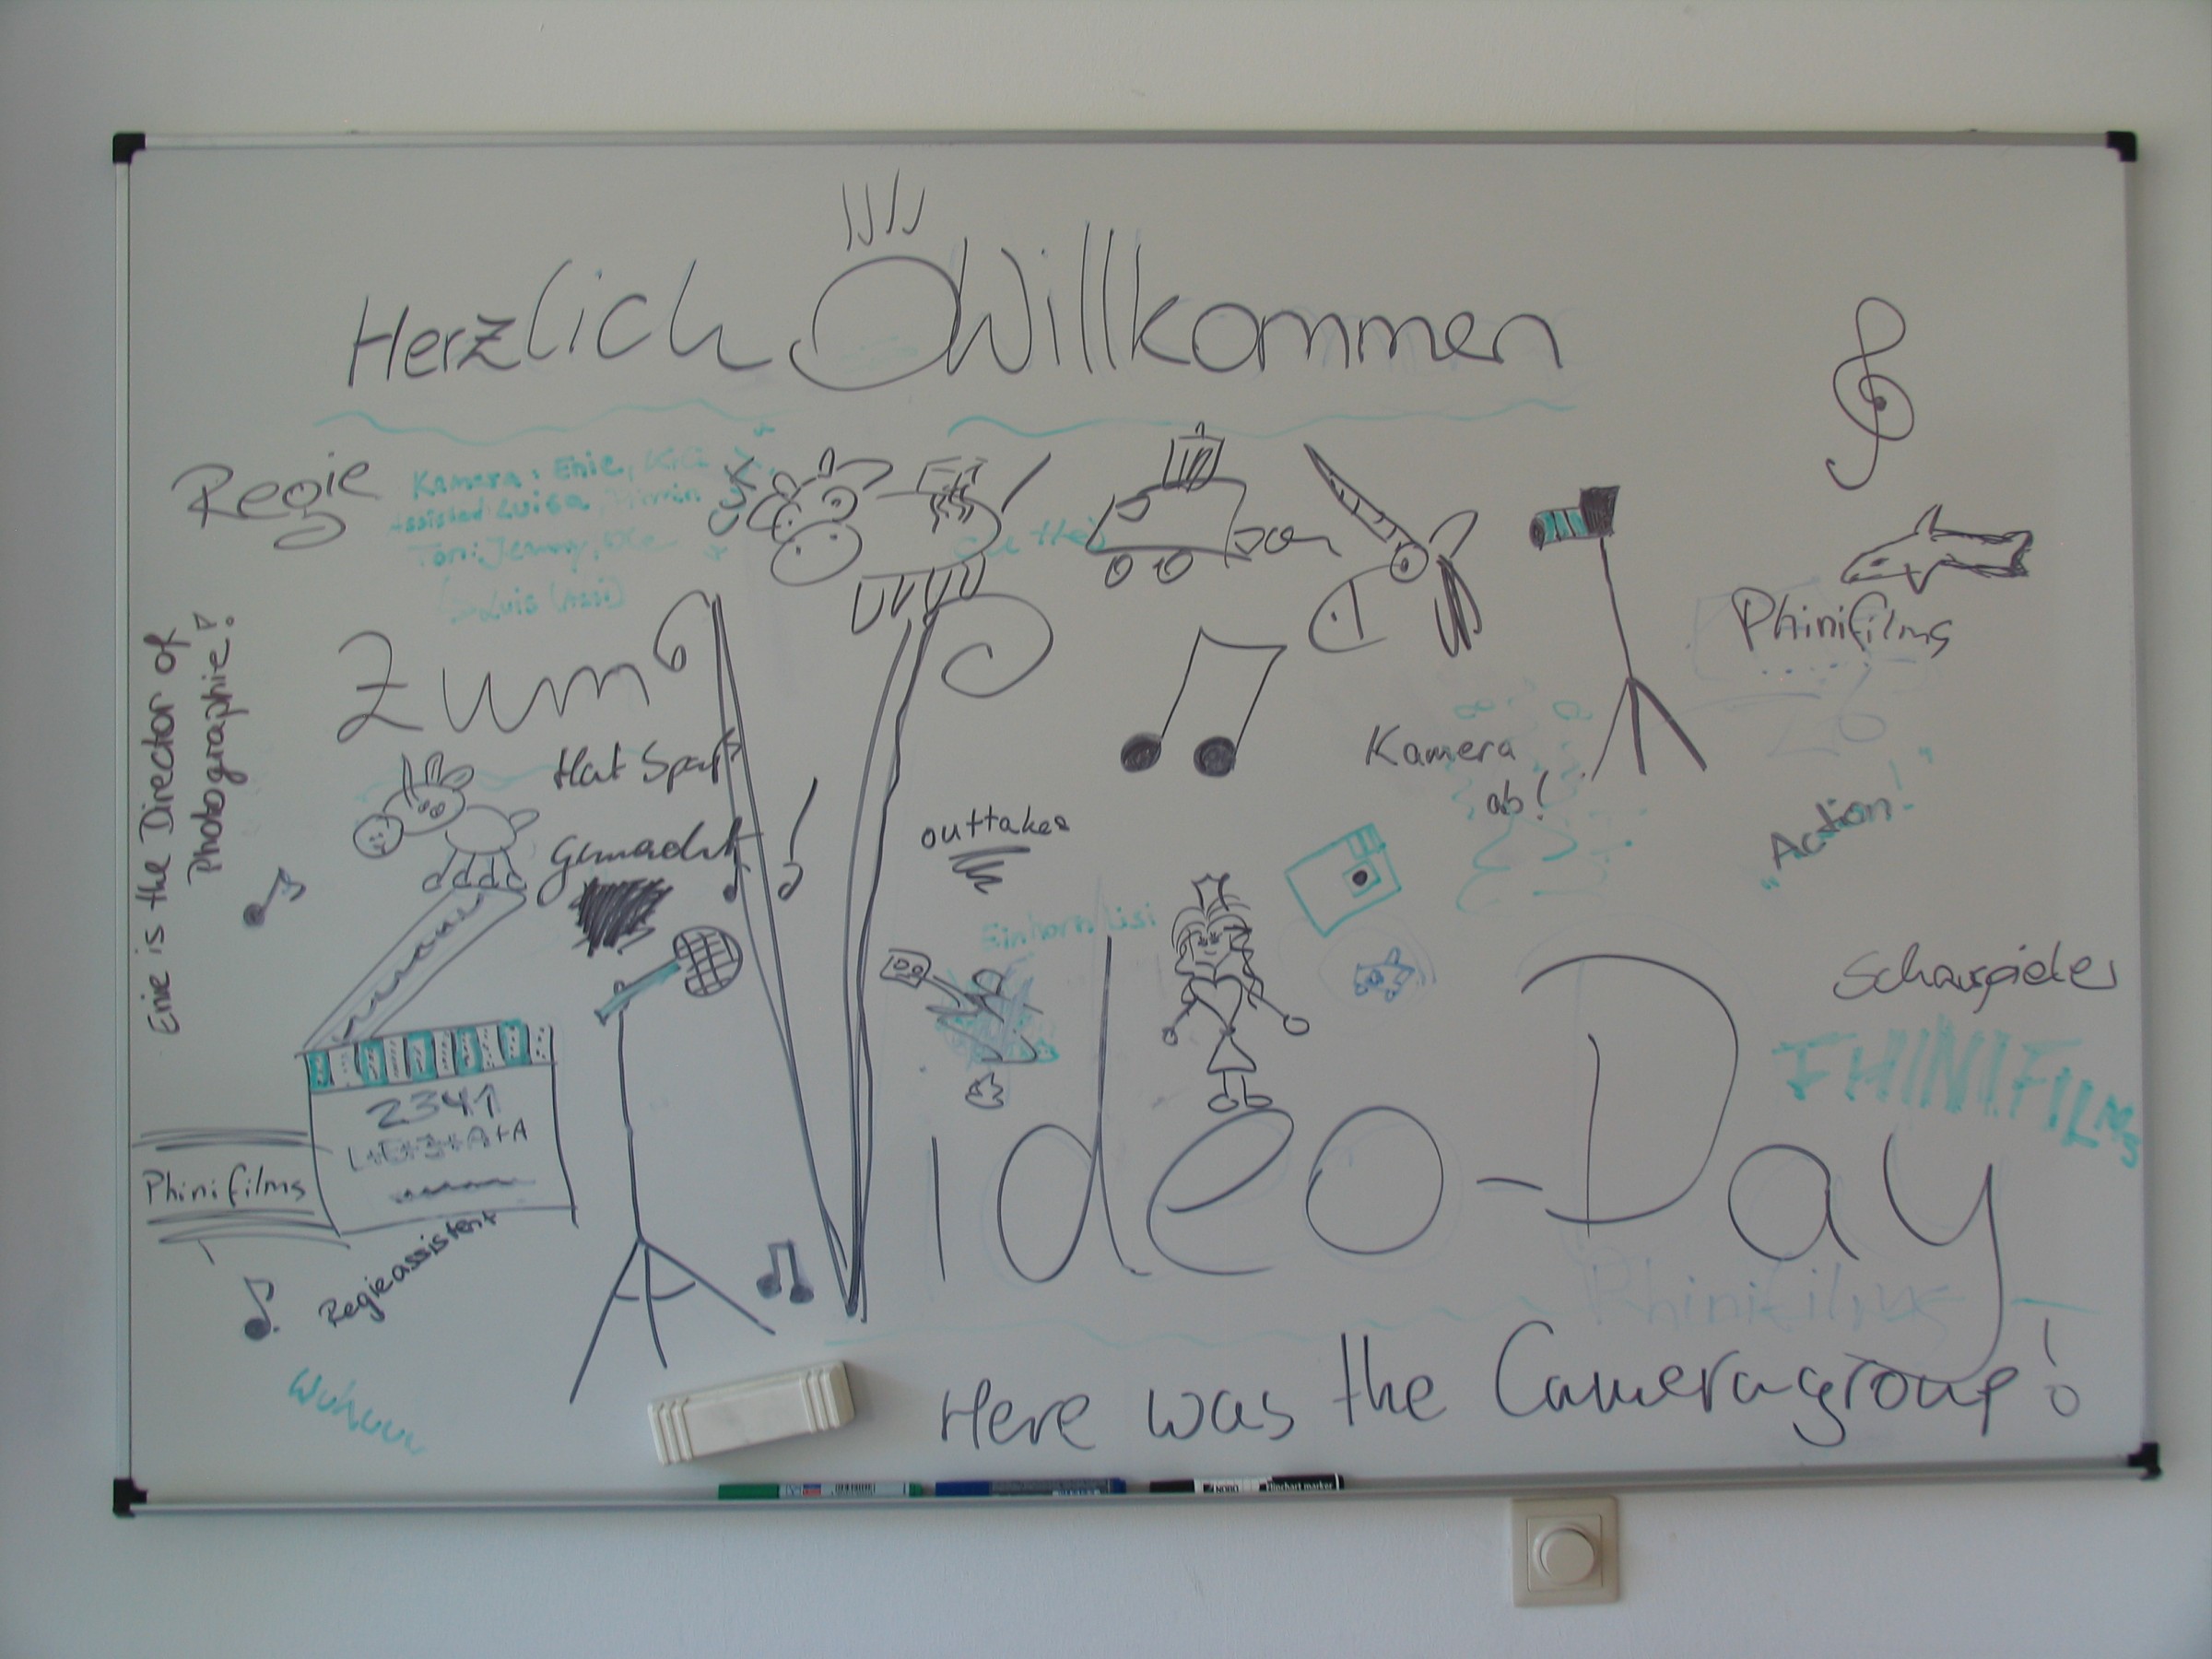 Herzlich Willkommen
Regie
Kamera: Enie,
Assistent Luisa,
Ton: Jenny,
Luis (Assi)
Enie is the Director of
Photographie!
zum
Hat Spaß
gemacht
outtakes
Kamera
ab!
Phinifilms
"Action!"
Einhorn Lisi
Schauspieler
PHINIFILMS
2341
L+E+J+A+A
Phinifilms
Regieassistent
Video-Day!
Phinifilms
Wuhuuu
Here was the Cameragroup!
NOBO flipchart marker